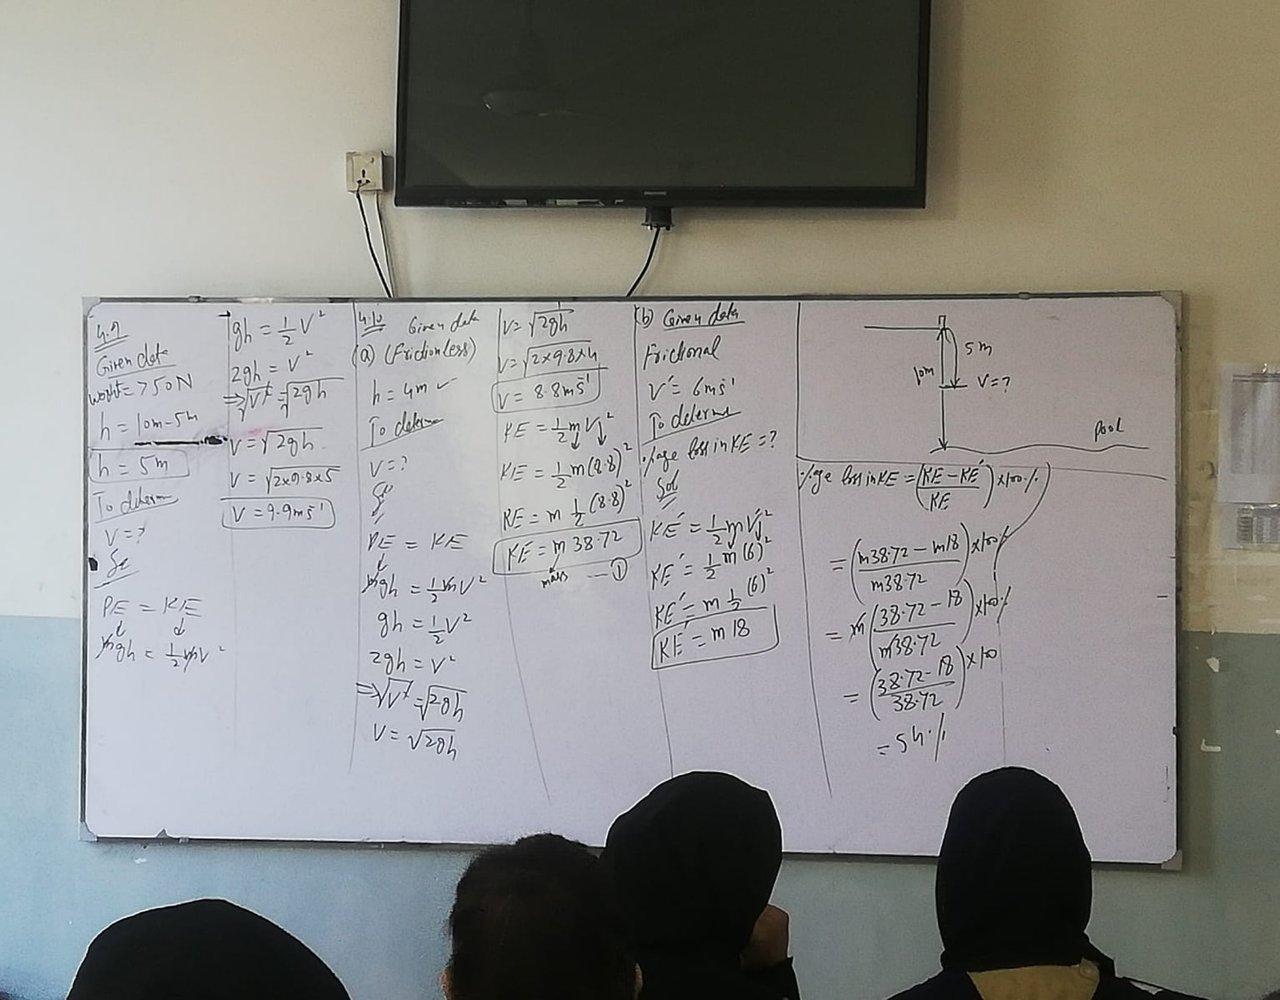 4.9
Given data
h = 10m-5m
h = 5m
To determine
V = ?
PE = KE
mgh = 1/2 mv²
gh = 1/2 V²
2gh = V²
⇒ √V² = √2gh
V = √2gh
V = √2x9.8x5
V = 9.9ms⁻¹
4.10 Given data
(a) (Frictionless)
h = 4m ✓
To determine
V = ?
PE = KE
mgh = 1/2 mV²
gh = 1/2 V²
2gh = V²
⇒ √V² = √2gh
V = √2gh
V = √2gh
V = √2x9.8x4
V = 8.8ms⁻¹
KE = 1/2 m V²
KE = 1/2 m (8.8)²
KE = m 1/2 (8.8)²
KE = m 38.72
mass --- ①
(b) Given data
Frictional
V' = 6ms⁻¹
To determine
%age loss in KE = ?
Sol
KE' = 1/2 m V'²
KE' = 1/2 m (6)²
KE' = m 1/2 (6)²
KE' = m 18
5m
10m
V = ?
Pool
%age loss in KE = (KE - KE' / KE) x 100%
= (m38.72 - m18 / m38.72) x 100%
= m (38.72 - 18 / m38.72) x 100%
= (38.72 - 18 / 38.72) x 100
= 54%